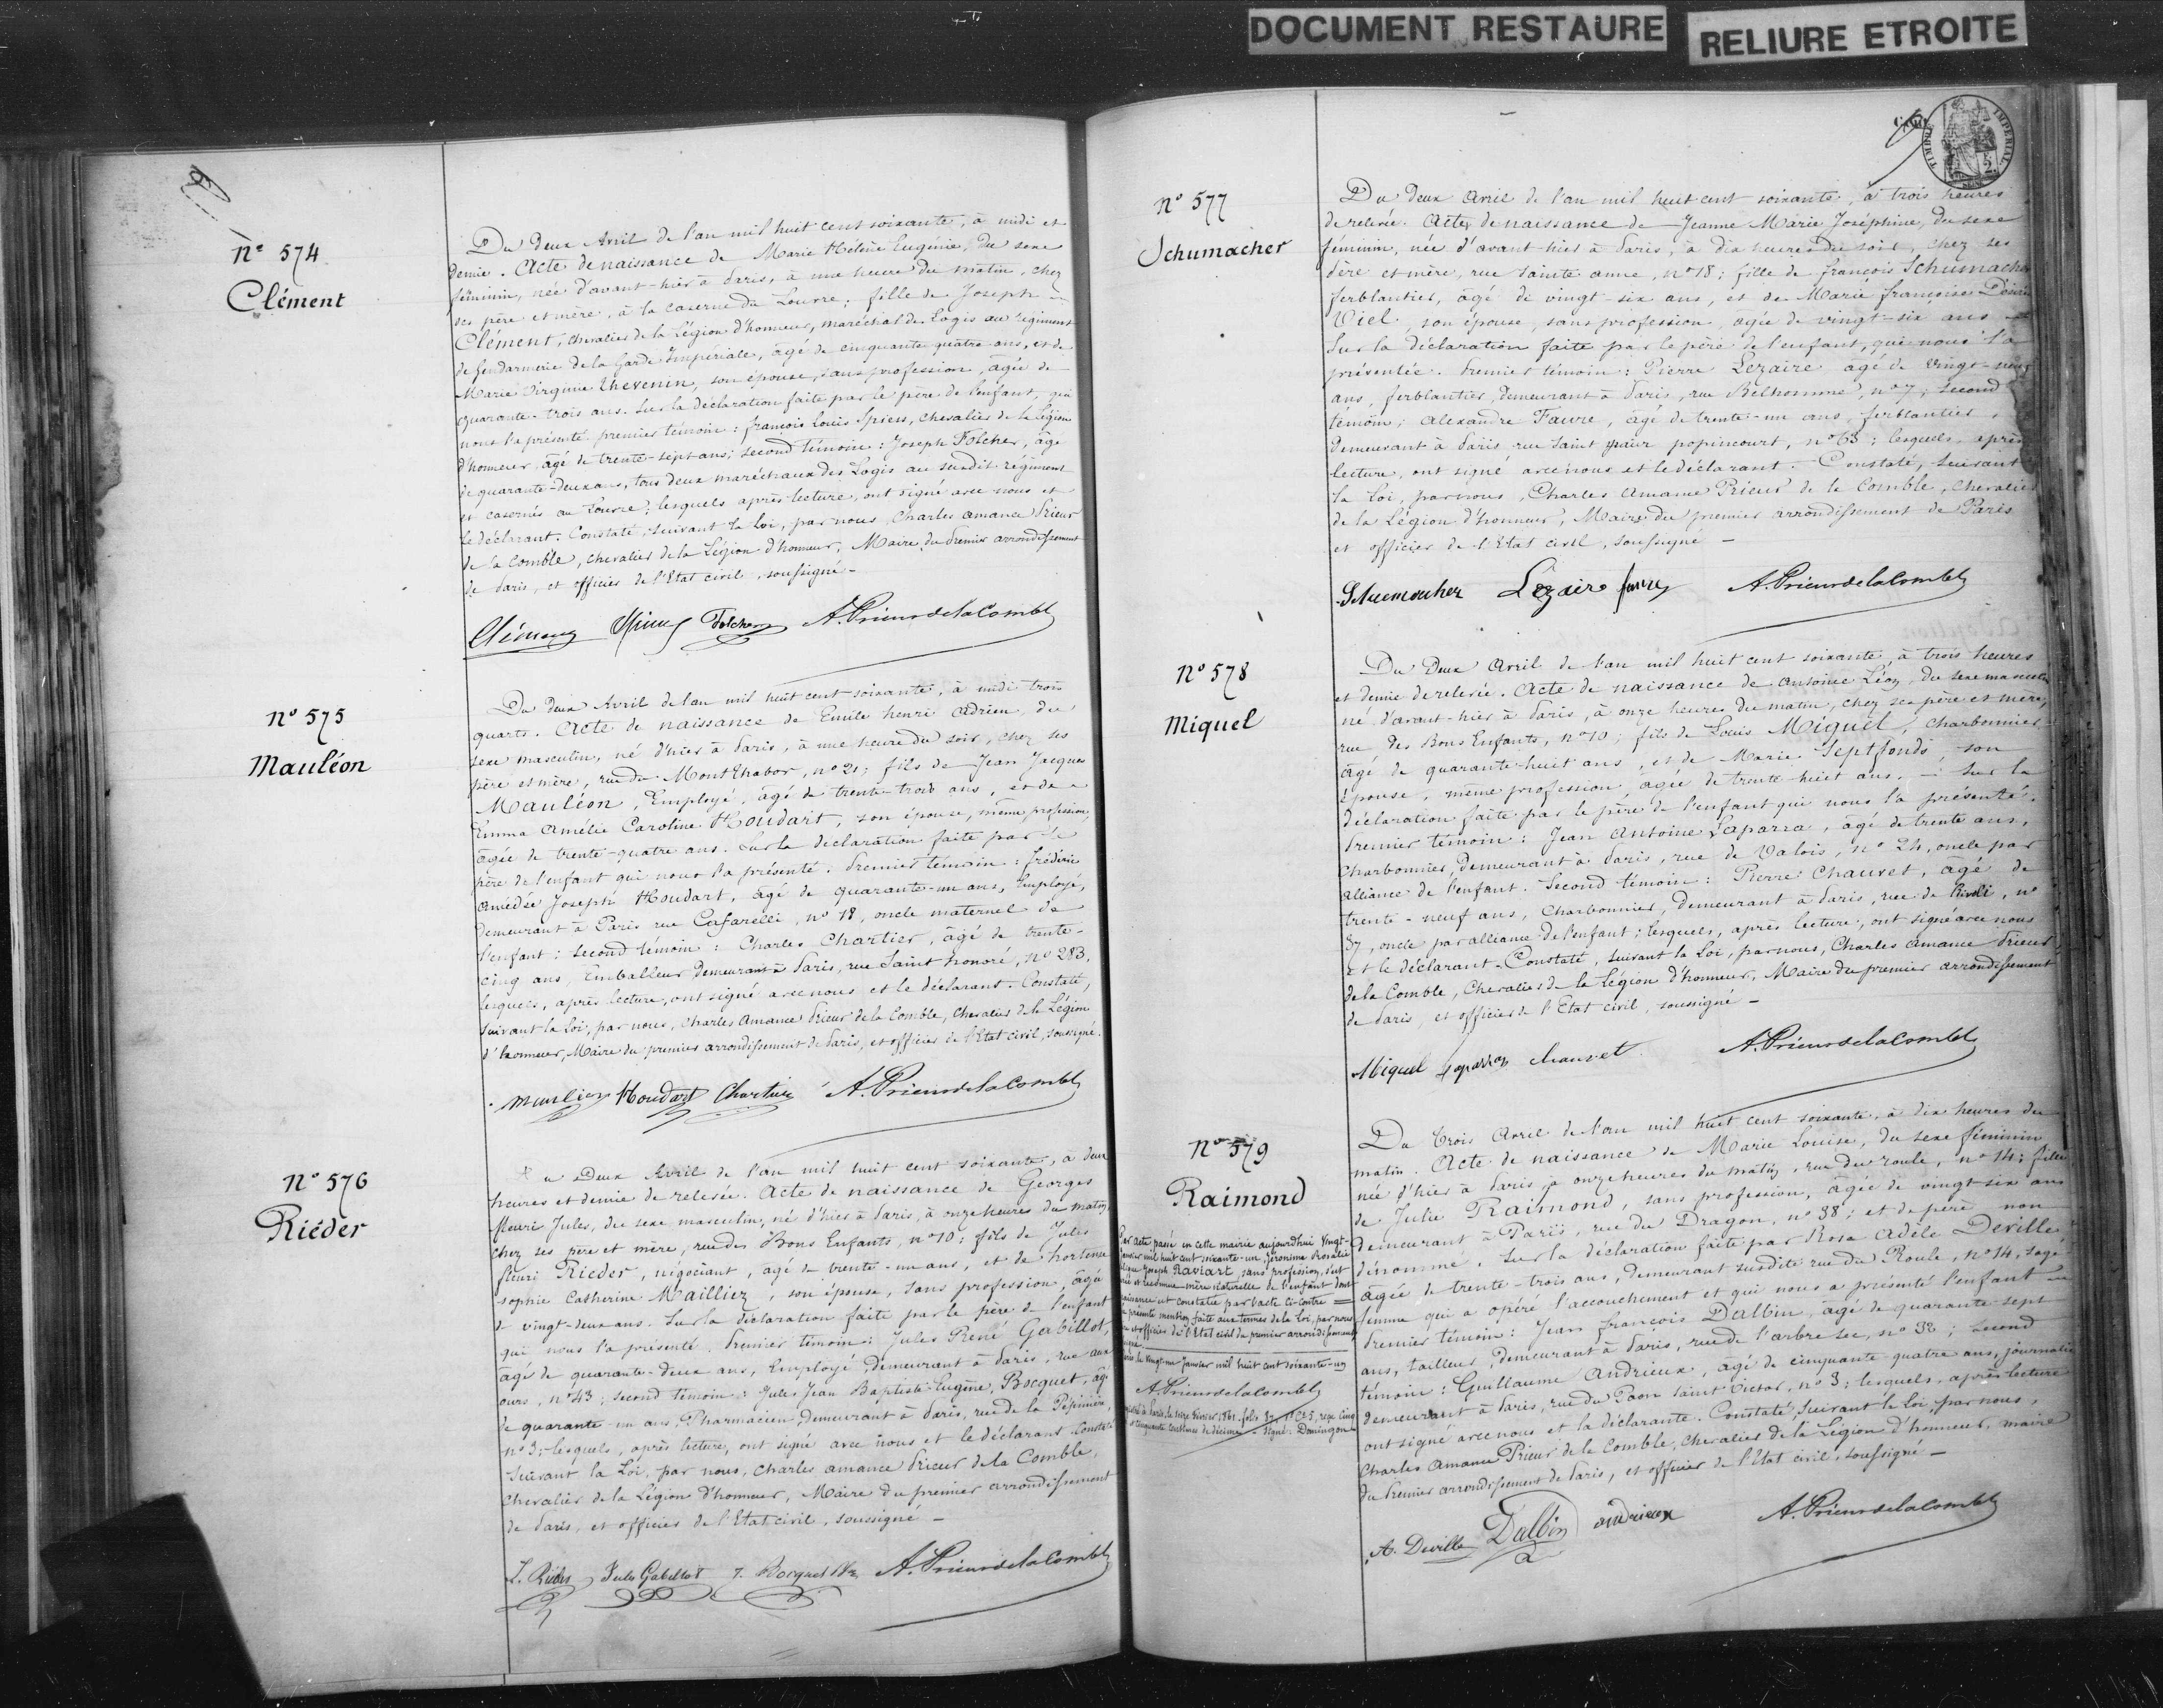 DOCUMENT RESTAURE
RELIURE ETROITE
N° 574
Clément
Du deux Avril de l'an mil huit cent soixante, à midi et
demie. Acte de naissance de Marie Hélène Eugénie, du sexe
féminin, née d'avant-hier à Paris, à une heure du matin, chez
ses père et mère, à la caserne du Louvre; fille de Joseph
Clément, chevalier de la Légion d'honneur, maréchal des Logis au régiment
de Gendarmerie de la Garde Impériale, âgé de cinquante quatre ans, et de
Marie Virginie Thevenin, son épouse, sans profession, âgée de
quarante-trois ans. Sur la déclaration faite par le père de l'enfant, qui
nous l'a présenté. premier témoin: françois Louis Spiess, chevalier de la Légion
d'honneur, âgé de trente-sept ans; second témoin: Joseph Folcher, âgé
de quarante-deux ans, tous deux maréchaux des Logis au susdit régiment
et casernés au Louvre; lesquels après lecture, ont signé avec nous et
le déclarant. Constaté, suivant la loi, par nous Charles amance Prieur
de la Comble, chevalier de la Légion d'honneur, Maire du Premier arrondissement
de Paris, et officier de l'Etat civil, soussigné -
Clément Spiess Folcher A. Prieur de la Comble
N° 575
Mauléon
Du deux Avril de l'an mil huit cent soixante, à midi trois
quarts. Acte de naissance de Emile henri Adrien, du
sexe masculin, né d'hier à Paris, à une heure du soir, chez ses
père et mère, rue du Mont Thabor, n° 21; fils de Jean Jacques
Mauléon, Employé, âgé de trente-trois ans, et de
Emma Amélie Caroline Houdart, son épouse, même profession,
âgée de trente-quatre ans. Sur la déclaration faite par le
père de l'enfant qui nous l'a présenté. Premier témoin: frédéric
amédée Joseph Houdart, âgé de quarante-un ans, Employé,
demeurant à Paris rue Cafarelli, n° 18, oncle maternel de
l'enfant: second témoin: Charles Chartier, âgé de trente-
cinq ans, Emballeur demeurant à Paris, rue Saint honoré, n° 283,
lesquels, après lecture, ont signé avec nous et le déclarant. Constaté,
suivant la loi, par nous, Charles Amance Prieur de la Comble, Chevalier de la Légion
d'honneur, Maire du premier arrondissement de Paris, et officier de l'Etat civil, soussigné.
Mauléon Houdart Chartier A. Prieur de la Comble
N° 576
Rieder
Du Deux Avril de l'an mil huit cent soixante, à deux
heures et demie de relevée. Acte de naissance de Georges
fleuri Jules, du sexe masculin, né d'hier à Paris, à onze heures du matin,
chez ses père et mère, rue des Bons Enfants, n° 10; fils de Jules
fleuri Rieder, négociant, âgé de trente-un ans, et de hortense
sophie Catherine Mailliez, son épouse, sans profession, âgée
de vingt-deux ans. Sur la déclaration faite par le père de l'enfant
qui nous l'a présenté. Premier témoin: Jules René Gabillot,
âgé de quarante-deux ans, Employé, demeurant à Paris, rue aux
ours, n° 43; second témoin: Jules Jean Baptiste Eugène Bocquet, âgé
de quarante-un ans, Pharmacien, demeurant à Paris, rue de la Pépinière,
n° 3; lesquels, après lecture, ont signé avec nous et le déclarant. Constaté
suivant la Loi, par nous, Charles amance Prieur de la Comble,
Chevalier de la Légion d'honneur, Maire du premier arrondissement
de Paris, et officier de l'Etat civil, soussigné -
J. Rieder Jules Gabillot J. Bocquet A. Prieur de la Comble
TIMBRE IMPERIAL
N° 577
Schumacher
Du Deux Avril de l'an mil huit cent soixante, à trois heures
de relevée. Acte de naissance de Jeanne Marie Joséphine, du sexe
féminin, née d'avant hier à Paris, à dix heures du soir, chez ses
Père et mère, rue Sainte anne, n° 18; fille de françois Schumacher
ferblantier, âgé de vingt-six ans, et de Marie françoise
Viel, son épouse, sans profession, âgée de vingt-six ans
Sur la déclaration faite par le père de l'enfant, qui nous l'a
présentée. Premier témoin: Pierre Lezaire âgé de vingt-neuf
ans, ferblantier, demeurant à Paris, rue Belhomme, n° 7; second
témoin; Alexandre Faure, âgé de trente-un ans, ferblantier,
demeurant à Paris rue Saint Maur popincourt, n° 63; lesquels, après
lecture, ont signé avec nous et le déclarant. Constaté, suivant
la Loi, par nous, Charles Amance Prieur de la Comble, Chevalier
de la Légion d'honneur, Maire du premier arrondissement de Paris
et officier de l'Etat civil, soussigné -
Schumacher Lezaire faure A. Prieur de la Comble
N° 578
Miquel
Du Deux Avril de l'an mil huit cent soixante, à trois heures
et demie de relevée. Acte de naissance de Antoine Léon, du sexe masculin
né d'avant-hier à Paris, à onze heures du matin, chez ses père et mère,
rue des Bons Enfants, n° 10; fils de Louis Miquel, Charbonnier
âgé de quarante-huit ans, et de Marie Septfonds, son
épouse, même profession, âgée de trente-huit ans. - Sur la
déclaration faite par le père de l'enfant qui nous l'a présenté.
Premier témoin: Jean Antoine Laparra, âgé de trente ans,
Charbonnier, demeurant à Paris, rue de Valois, n° 24, oncle par
alliance de l'enfant. Second témoin: Pierre Chauvet, âgé de
trente-neuf ans, Charbonnier, demeurant à Paris, rue de Rivoli, n°
37, oncle par alliance de l'enfant; lesquels, après lecture, ont signé avec nous
et le déclarant. Constaté, suivant la Loi, par nous, Charles Amance Prieur
de la Comble, Chevalier de la Légion d'honneur, Maire du premier arrondissement
de Paris, et officier de l'Etat civil, soussigné -
Miquel Laparra Chauvet A. Prieur de la Comble
N° 579
Raimond
Par acte passé en cette mairie aujourd'hui Vingt-
janvier mil huit cent soixante-un, Jeronime Rosalie
Joseph Raviart, sans profession, s'est
et reconnue mère naturelle de l'enfant dont
naissance est constatée par l'acte ci-contre
présente mention faite aux termes de la Loi, par nous
et officier de l'Etat civil du premier arrondissement
le vingt-un Janvier mil huit cent soixante-un
A. Prieur de la Comble
à Paris, le seize février 1861. folio 87, reçu cinq
et cinquante centimes de décime - Signé: Domingon
Du Trois Avril de l'an mil huit cent soixante, à dix heures du
matin. Acte de naissance de Marie Louise, du sexe féminin
née d'hier à Paris à onze heures du matin, rue du roule, n° 14; fille
de Julie Raimond, sans profession, âgée de vingt-six ans
demeurant à Paris, rue du Dragon, n° 38; et de père non
dénommé. Sur la déclaration faite par Rosa Adèle Deville
âgée de trente-trois ans, demeurant susdite rue du Roule n° 14, sage
femme qui a opéré l'accouchement et qui nous a présenté l'enfant
Premier témoin: Jean François Dalbin, âgé de quarante-sept
ans, tailleur, demeurant à Paris, rue de l'arbre sec, n° 38; second
témoin: Guillaume Andrieux, âgé de cinquante-quatre ans, journalier
demeurant à Paris, rue du Paon Saint Victor, n° 3; lesquels, après lecture
ont signé avec nous et la déclarante. Constaté suivant la loi, par nous,
Charles Amance Prieur de la Comble, Chevalier de la Légion d'honneur, maire
du Premier arrondissement de Paris, et officier de l'Etat civil, soussigné -
A. Deville Dalbin andrieux A. Prieur de la Comble